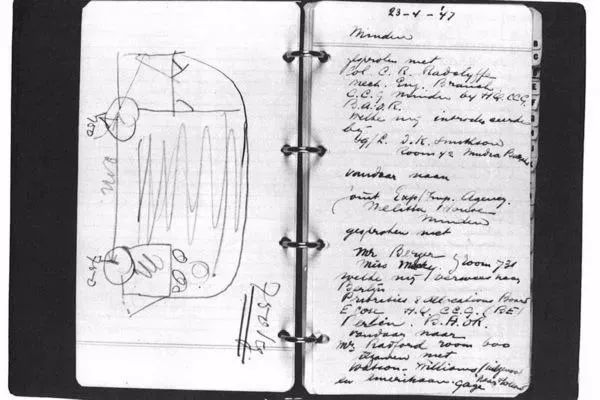 750
750
750 kg
23-4-'47
Minden
gesproken met
Col. C. R. Radclyffe
Mech. Eng. Branch
C.C.G. Minden by H.Q. CCG.
B.A.O.R.
welke mij introduceerde
bij
Room 42
vandaar naar
Joint Exp/Imp. Agency.
Melitta Houses
Minden
gesproken met
Mr Berger Room 731
Miss
welke mij verwees naar
Berlijn
Priorities & Allocations Board
H.Q. C.C.G. (BE)
Berlin. B.A.O.R.
vandaar naar
Mr. Radford room 600
met
Watson-Williams
en Amerikaan.